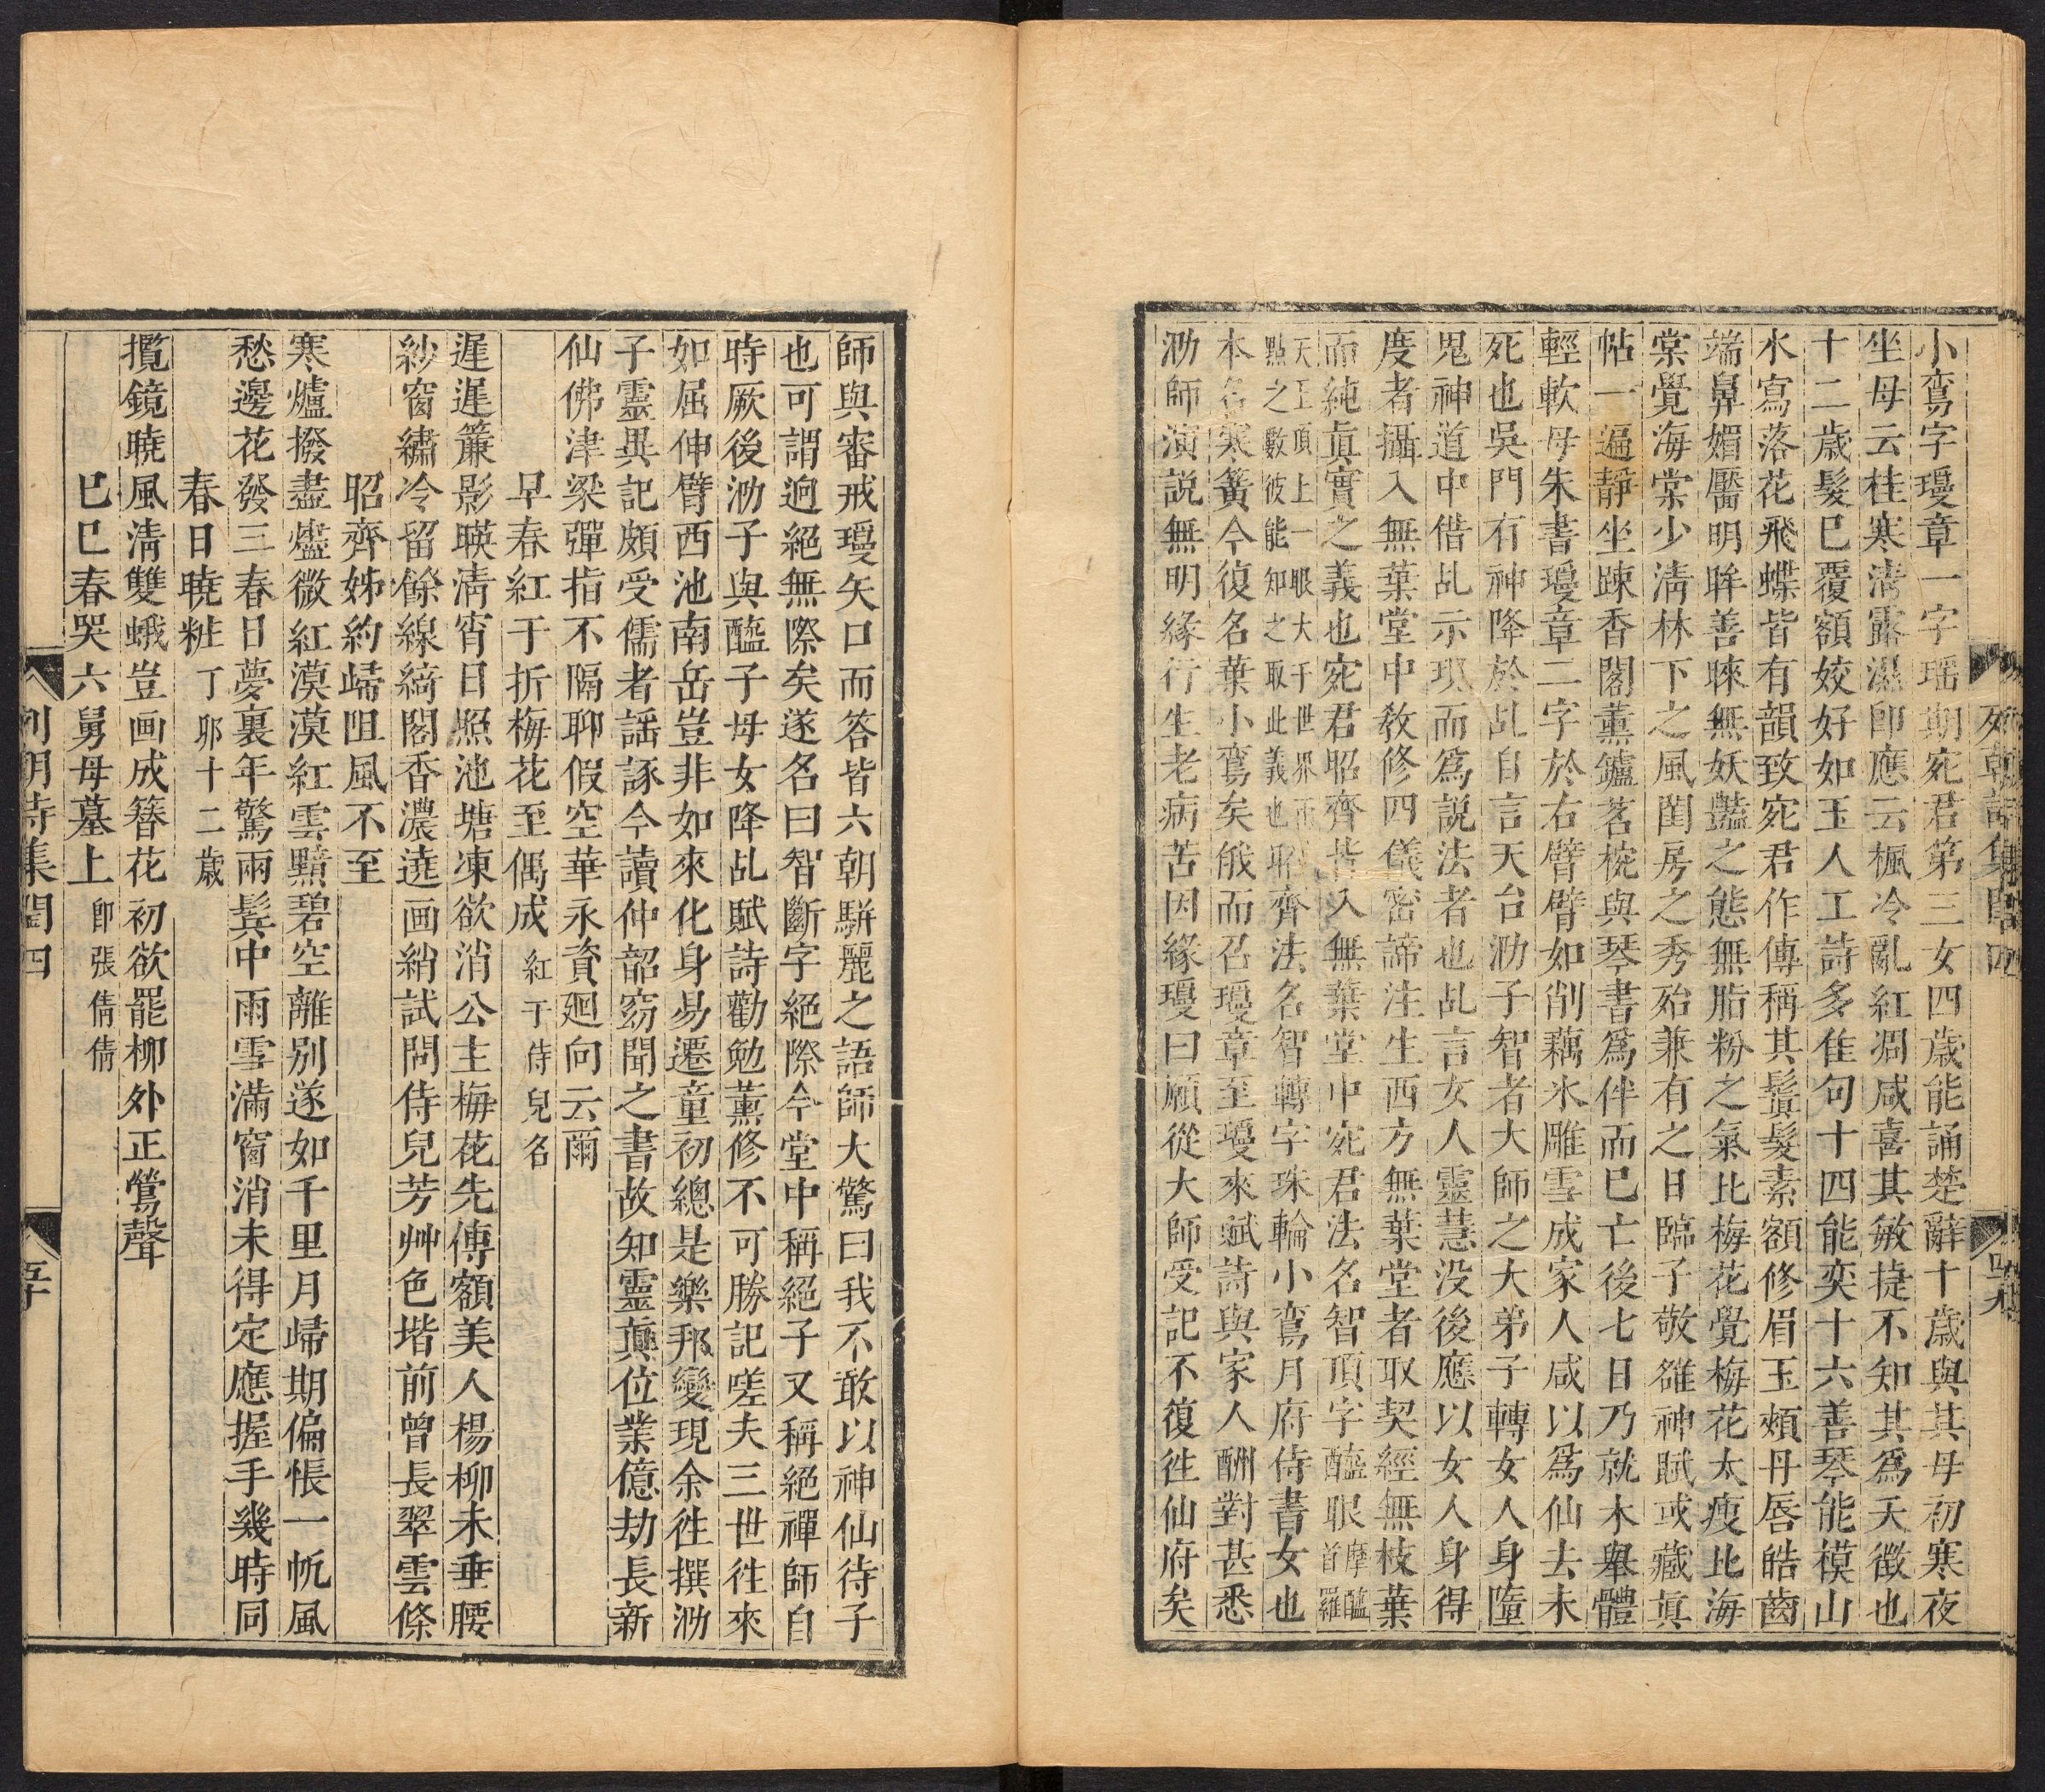 小鸞字瓊章一字瑶期宛君第三女四歲能誦楚辭十歲與其母初寒夜
坐母云桂寒清露濕卽應云楓冷亂紅凋咸喜其敏捷不知其爲夭徵也
十二歲髮巳覆額姣好如玉人工詩多佳句十四能奕十六善琴能模山
水寫落花飛蝶皆有韻致宛君作傳稱其鬒髮素額修眉玉頰丹唇皓齒
端鼻媚靨明眸善睞無妖豔之態無脂粉之氣比梅花覺梅花太瘦比海
棠覺海棠少清林下之風閨房之秀殆兼有之日臨子敬雒神賦或藏眞
帖一遍靜坐踈香閣薰鑪茗椀與琴書爲伴而巳亡後七日乃就木舉體
輕軟母朱書瓊章二字於右臂臂如削藕氷雕雪成家人咸以爲仙去未
死也吳門有神降於乩自言天台泐子智者大師之大弟子轉女人身墮
鬼神道中借乩示現而爲說法者也乩言女人靈慧没後應以女人身得
度者攝入無葉堂中敎修四儀密諦注生西方無葉堂者取契經無枝葉
而純眞實之義也宛君昭齊皆入無葉堂中宛君法名智頂字醯眼摩醯首羅
天王頂上一眼大千世界雨點之數彼能知之取此義也昭齊法名智轉字珠輪小鸞月府侍書女也
本名寒簧今復名葉小鸞矣俄而召瓊章至瓊來賦詩與家人酬對甚悉
泐師演說無明緣行生老病苦因緣瓊曰願從大師受記不復徃仙府矣
列朝詩集閏四
四十九
師與審戒瓊矢口而答皆六朝駢麗之語師大驚曰我不敢以神仙待子
也可謂逈絕無際矣遂名曰智斷字絕際今堂中稱絕子又稱絕禪師自
時厥後泐子與醯子母女降乩賦詩勸勉薰修不可勝記嗟夫三世徃來
如屈伸臂西池南岳豈非如來化身易遷童初總是樂邦變現余徃撰泐
子靈異記頗受儒者謡諑今讀仲韶窈聞之書故知靈眞位業億劫長新
仙佛津梁彈指不隔聊假空華永資廻向云爾
早春紅于折梅花至偶成紅于侍兒名
遲遲簾影暎淸宵日照池塘凍欲消公主梅花先傳額美人楊柳未垂腰
紗窗繡冷留餘線綺閣香濃遶画綃試問侍兒芳艸色堦前曾長翠雲條
昭齊姊約歸阻風不至
寒爐撥盡燼微紅漠漠紅雲黯碧空離別遂如千里月歸期偏悵一帆風
愁邊花發三春日夢裏年驚兩鬂中雨雪滿窗消未得定應握手幾時同
春日曉粧丁夘十二歲
攬鏡曉風淸雙蛾豈画成簪花初欲罷柳外正鶯聲
巳巳春哭六舅母墓上卽張倩倩
列朝詩集閏四
五十